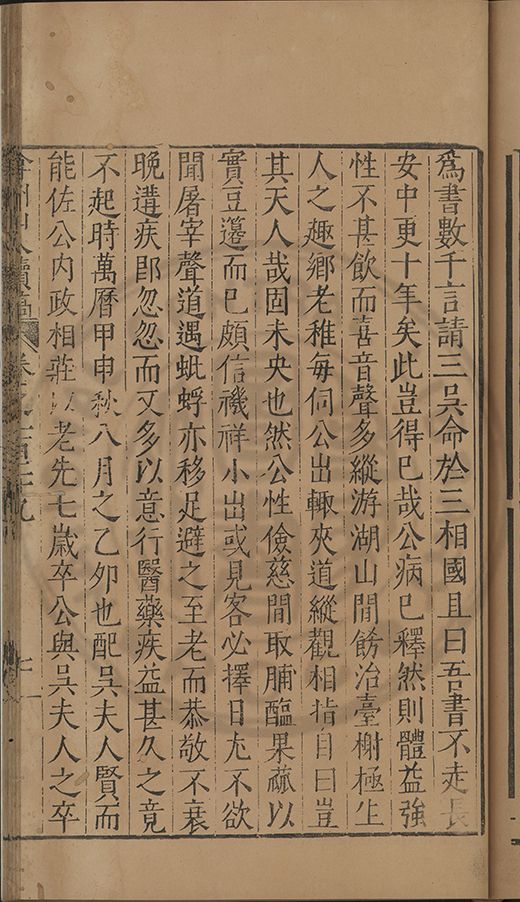 爲書數千言請三吳命於三相國且曰吾書不走長
安中更十年矣此豈得已哉公病已釋然則體益強
性不甚飲而喜音聲多縱游湖山間餙治臺榭極生
人之趣鄉老稚每伺公出輙夾道縱觀相指目曰豈
其天人哉固未央也然公性儉慈間取脯醢果蓏以
實豆籩而已頗信禨祥小出或見客必擇日尤不欲
聞屠宰聲道遇蚍蜉亦移足避之至老而恭敬不衰
晚遘疾卽忽忽而又多以意行醫藥疾益甚久之竟
不起時萬曆甲申秋八月之乙卯也配吳夫人賢而
能佐公内政相莊以老先七歲卒公與吳夫人之卒
弇州山人續稿 卷之一百三十九